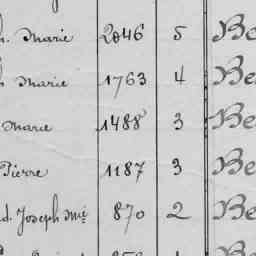 Marie 2046 5 Be
Marie 1763 4 Be
Marie 1488 3 Be
Pierre 1187 3 Be
d. Joseph Mie 870 2 Be